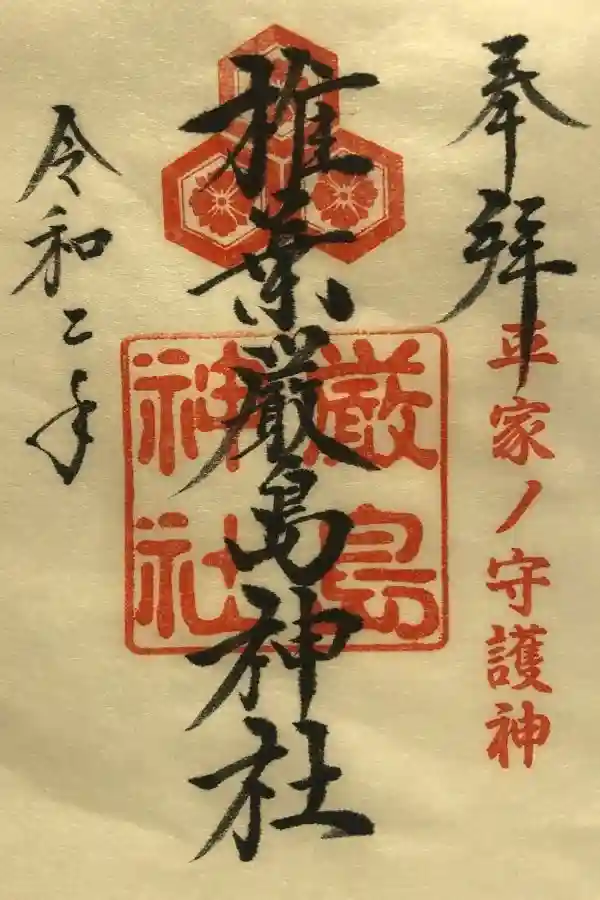 奉拝
平家ノ守護神
椎葉厳島神社
厳島
神社
令和二年